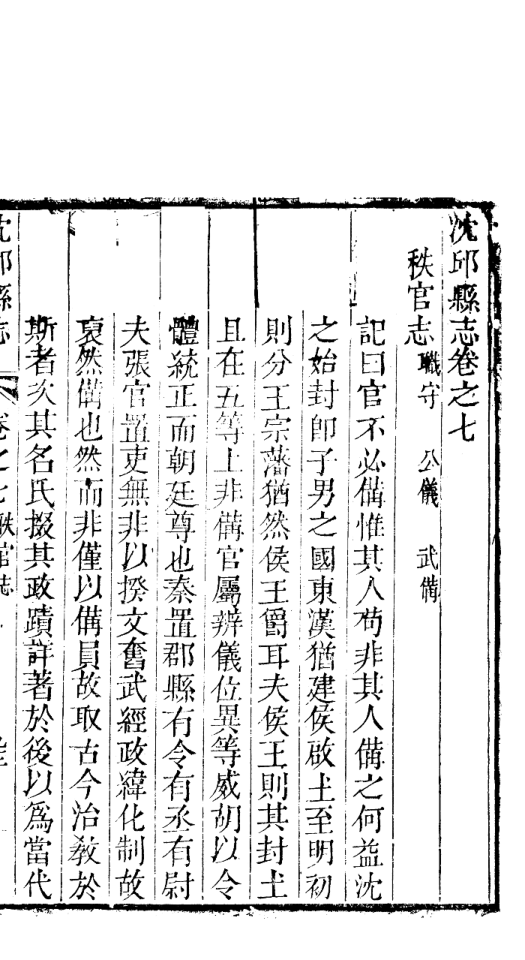 沈邱縣志卷之七
秩官志 職守 公儀 武備
記曰官不必備惟其人苟非其人備之何益沈
之始封卽子男之國東漢猶建侯啟土至明初
則分王宗藩猶然侯王爵耳夫侯王則其封土
且在五等上非備官屬辨儀位異等威胡以令
體統正而朝廷尊也秦置郡縣有令有丞有尉
夫張官置吏無非以揆文奮武經政緯化制故
裒然備也然而非僅以備員故取古今治教於
斯者次其名氏掇其政蹟詳著於後以爲當代
沈邱縣志 卷之七 秩官志